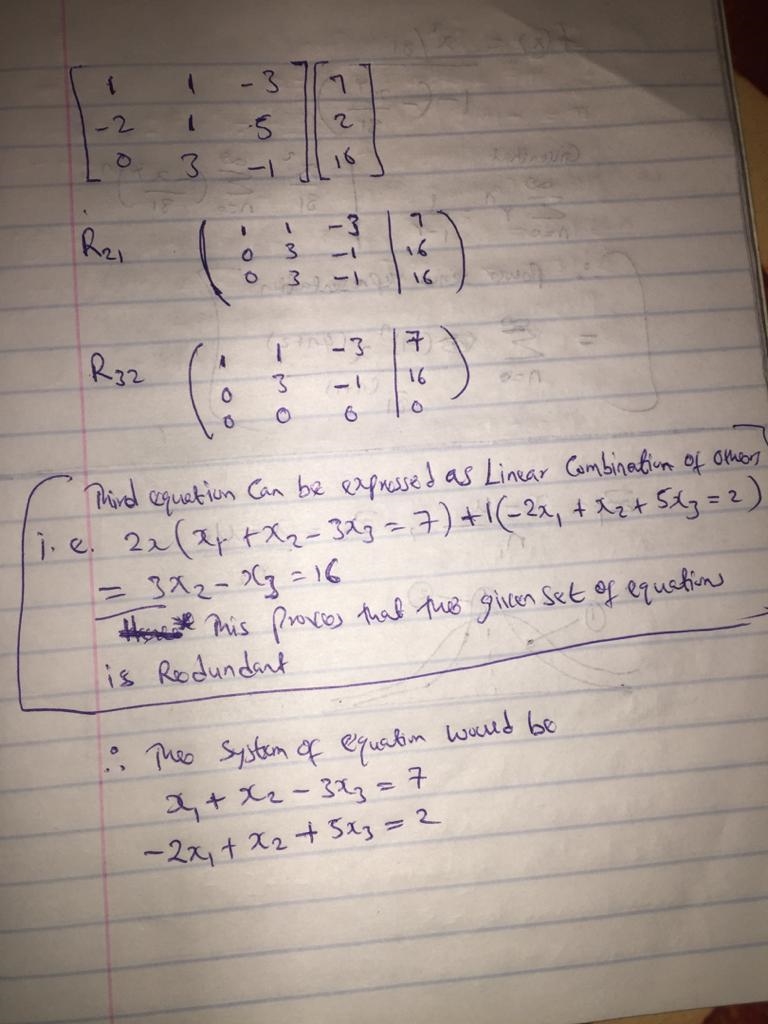 1 1 -3 7
-2 1 5 2
0 3 -1 16
R21 1 1 -3 7
0 3 -1 16
0 3 -1 16
R32 1 1 -3 7
0 3 -1 16
0 0 0 0
Third equation Can be expressed as Linear Combination of others
i.e. 2x(x1+x2-3x3=7)+1(-2x1+x2+5x3=2)
= 3x2-x3=16
This proves that the given set of equation
is Redundant
∴ The system of equation would be
x1+x2-3x3=7
-2x1+x2+5x3=2